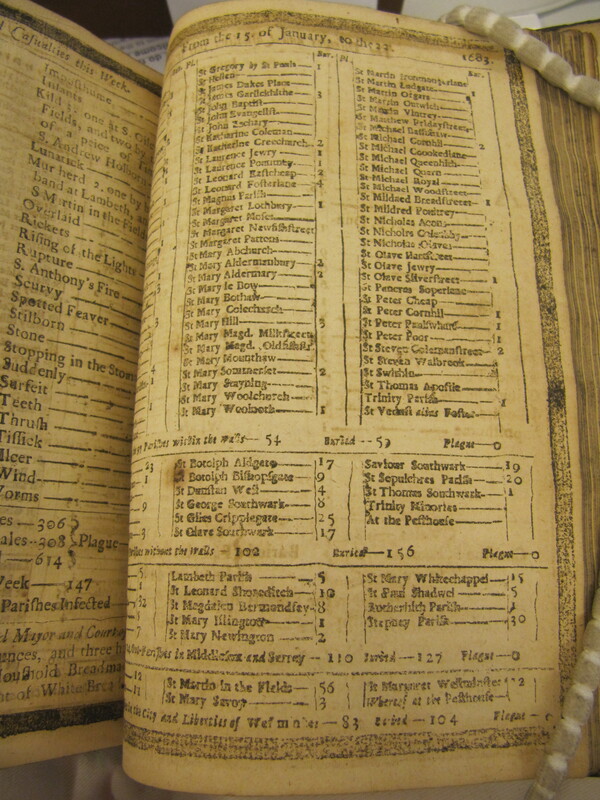 Casualties this Week.
Imposthume
Infants
Kild
Fields, and two by
of a piece of
S. Andrew Holborn
Lunatick
Murtherd 2. one by
band at Lambeth, and
S Martin in the Fields
Overlaid
Rickets
Rising of the Lights
Rupture
S. Anthony's Fire
Scurvy
Spotted Feaver
Stilborn
Stone
Stopping in the Stom
Suddenly
Surfeit
Teeth
Thrush
Tissick
Ulcer
Wind
Worms
es — 306
ales — 308 Plague
l — 614
Week — 147
Parishes Infected
From the 15. of January, to the 22. 1683.
Bur. Pl.
St Gregory by St Pauls — 1
St Hellen
St James Dukes Place
St James Garlickhithe — 3
St John Baptist
St John Evangelist
St John Zachary
St Katharine Coleman
St Katharine Creechurch — 2
St Laurence Jewry — 1
St Laurence Pountney — 1
St Leonard Eastcheap — 2
St Leonard Fosterlane — 4
St Magnus Parish
St Margaret Lothbury — 1
St Margaret Moses
St Margaret Newfishstreet
St Margaret Pattons
St Mary Abchurch
St Mary Aldermanbury — 2
St Mary Aldermary — 2
St Mary le Bow
St Mary Bothaw
St Mary Colechurch
St Mary Hill — 3
St Mary Magd. Milkstreet
St Mary Magd. Oldfishstr.
St Mary Mounthaw
St Mary Somerset — 2
St Mary Stayning
St Mary Woolchurch
St Mary Woolnoth — 1
Bur.
St Martin Iremongerlane
St Martin Ludgate
St Martin Orgars
St Martin Outwich
St Martin Vintrey
St Matthew Fridaystreet
St Michael Bassishaw
St Michael Cornhil — 2
St Michael Crookedlane
St Michael Queenhith
St Michael Quern
St Michael Royal
St Michael Woodstreet
St Mildred Breadstreet — 1
St Mildred Poultrey
St Nicholas Acons
St Nicholas Coleabby
St Nicholas Olaves
St Olave Hartstreet
St Olave Jewry
St Olave Silverstreet — 1
St Pancras Soperlane
St Peter Cheap
St Peter Cornhil — 1
St Peter Paulswharf — 1
St Peter Poor — 1
St Steven Colemanstreet — 2
St Steven Walbrook
St Swithin
St Thomas Apostle
Trinity Parish — 1
St Vedast alias Foster
Parishes within the walls — 54 Buried — 59 Plague — 0
St Botolph Aldgate — 17
St Botolph Bishopsgate — 9
St Dunstan West — 4
St George Southwark — 8
St Giles Cripplegate — 25
St Olave Southwark — 17
Saviour Southwark — 19
St Sepulchres Parish — 20
St Thomas Southwark — 1
Trinity Minories
At the Pesthouse
without the Walls — 102 Buried — 156 Plague — 0
Lambeth Parish — 5
St Leonard Shoreditch — 10
St Magdalen Bermondsey — 8
St Mary Islington — 1
St Mary Newington — 2
St Mary Whitechappel — 15
St Paul Shadwel — 5
Rotherhith Parish — 1
Stepney Parish — 30
Parishes in Middlesex and Surrey — 110 Buried — 127 Plague — 0
St Martin in the Fields — 56
St Mary Savoy — 3
St Margaret Westminster
Whereof at the Pesthouse
the City and Liberties of Westminster — 83 Buried — 104 Plague — 0